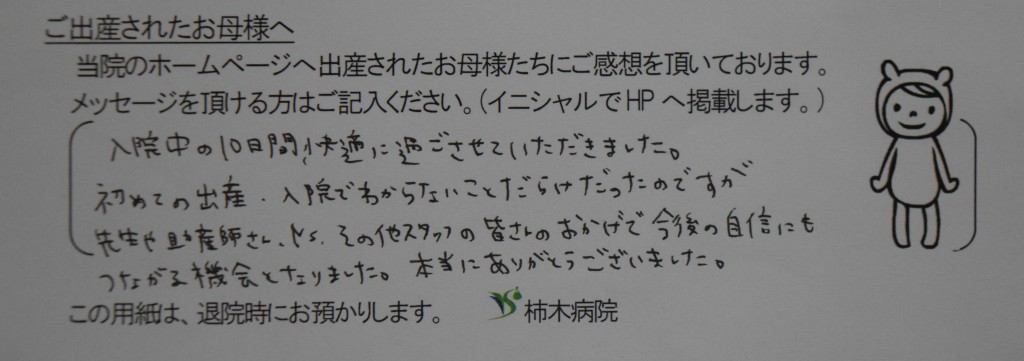 ご出産されたお母様へ
当院のホームページへ出産されたお母様たちにご感想を頂いております。
メッセージを頂ける方はご記入ください。(イニシャルでHPへ掲載します。)
入院中の10日間、快適に過ごさせていただきました。
初めての出産・入院でわからないことだらけだったのですが
先生や助産師さん、Ns、その他スタッフの皆さんのおかげで今後の自信にも
つながる機会となりました。本当にありがとうございました。
この用紙は、退院時にお預かりします。 柿木病院